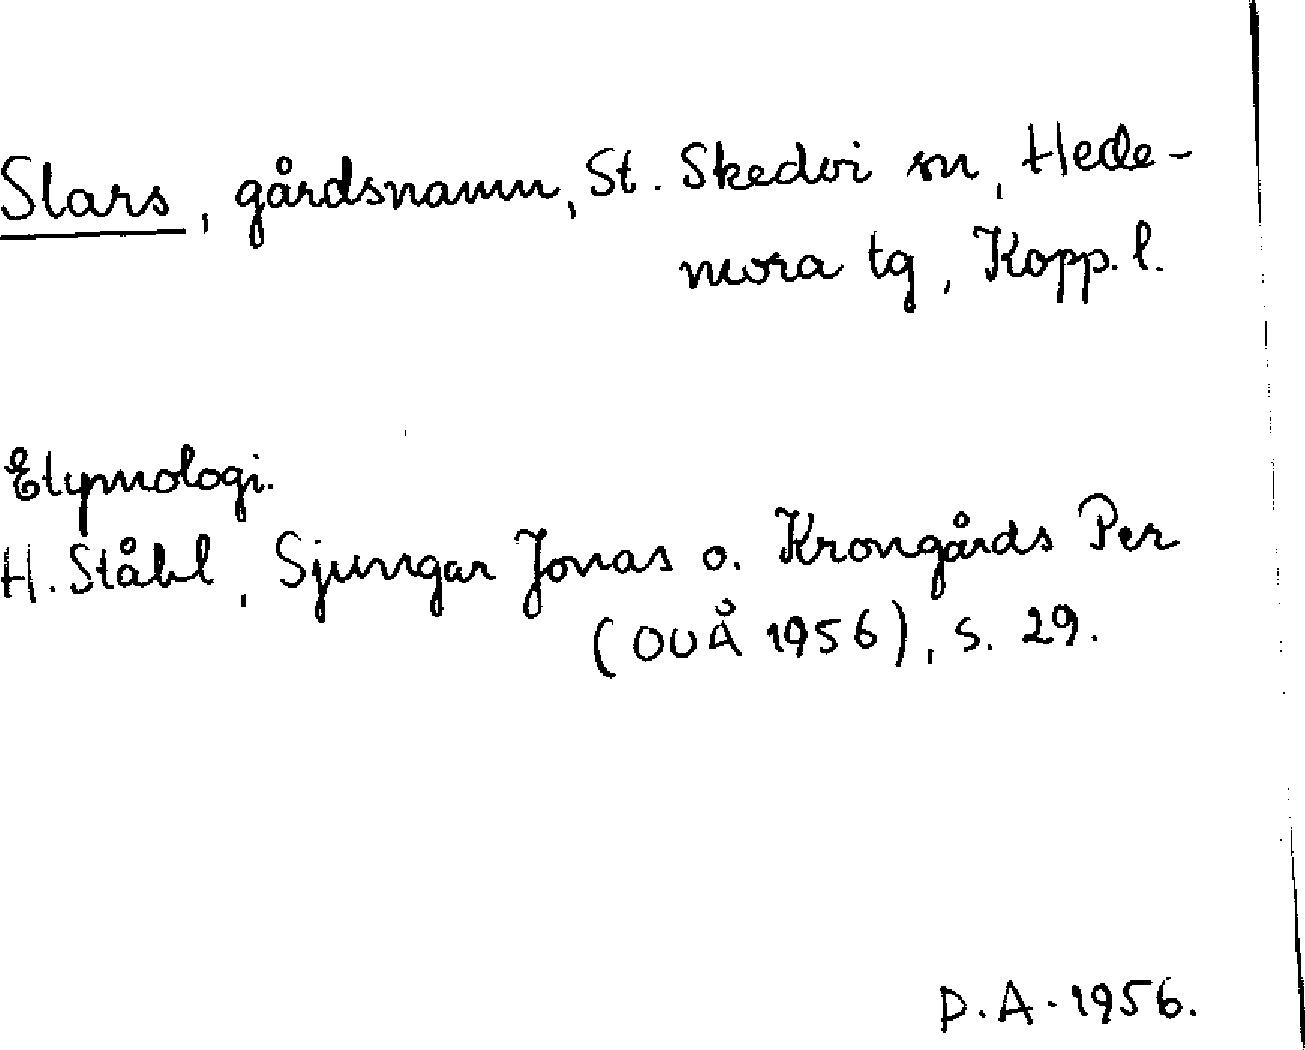 Slars, gårdsnamn, St. Skedvi sn, Hede-
mora tg, Kopp. l.
Etymologi.
H. Ståhl, Sjungar Jonas o. Krongårds Per
(OUÅ 1956), s. 29.
P.A. 1956.